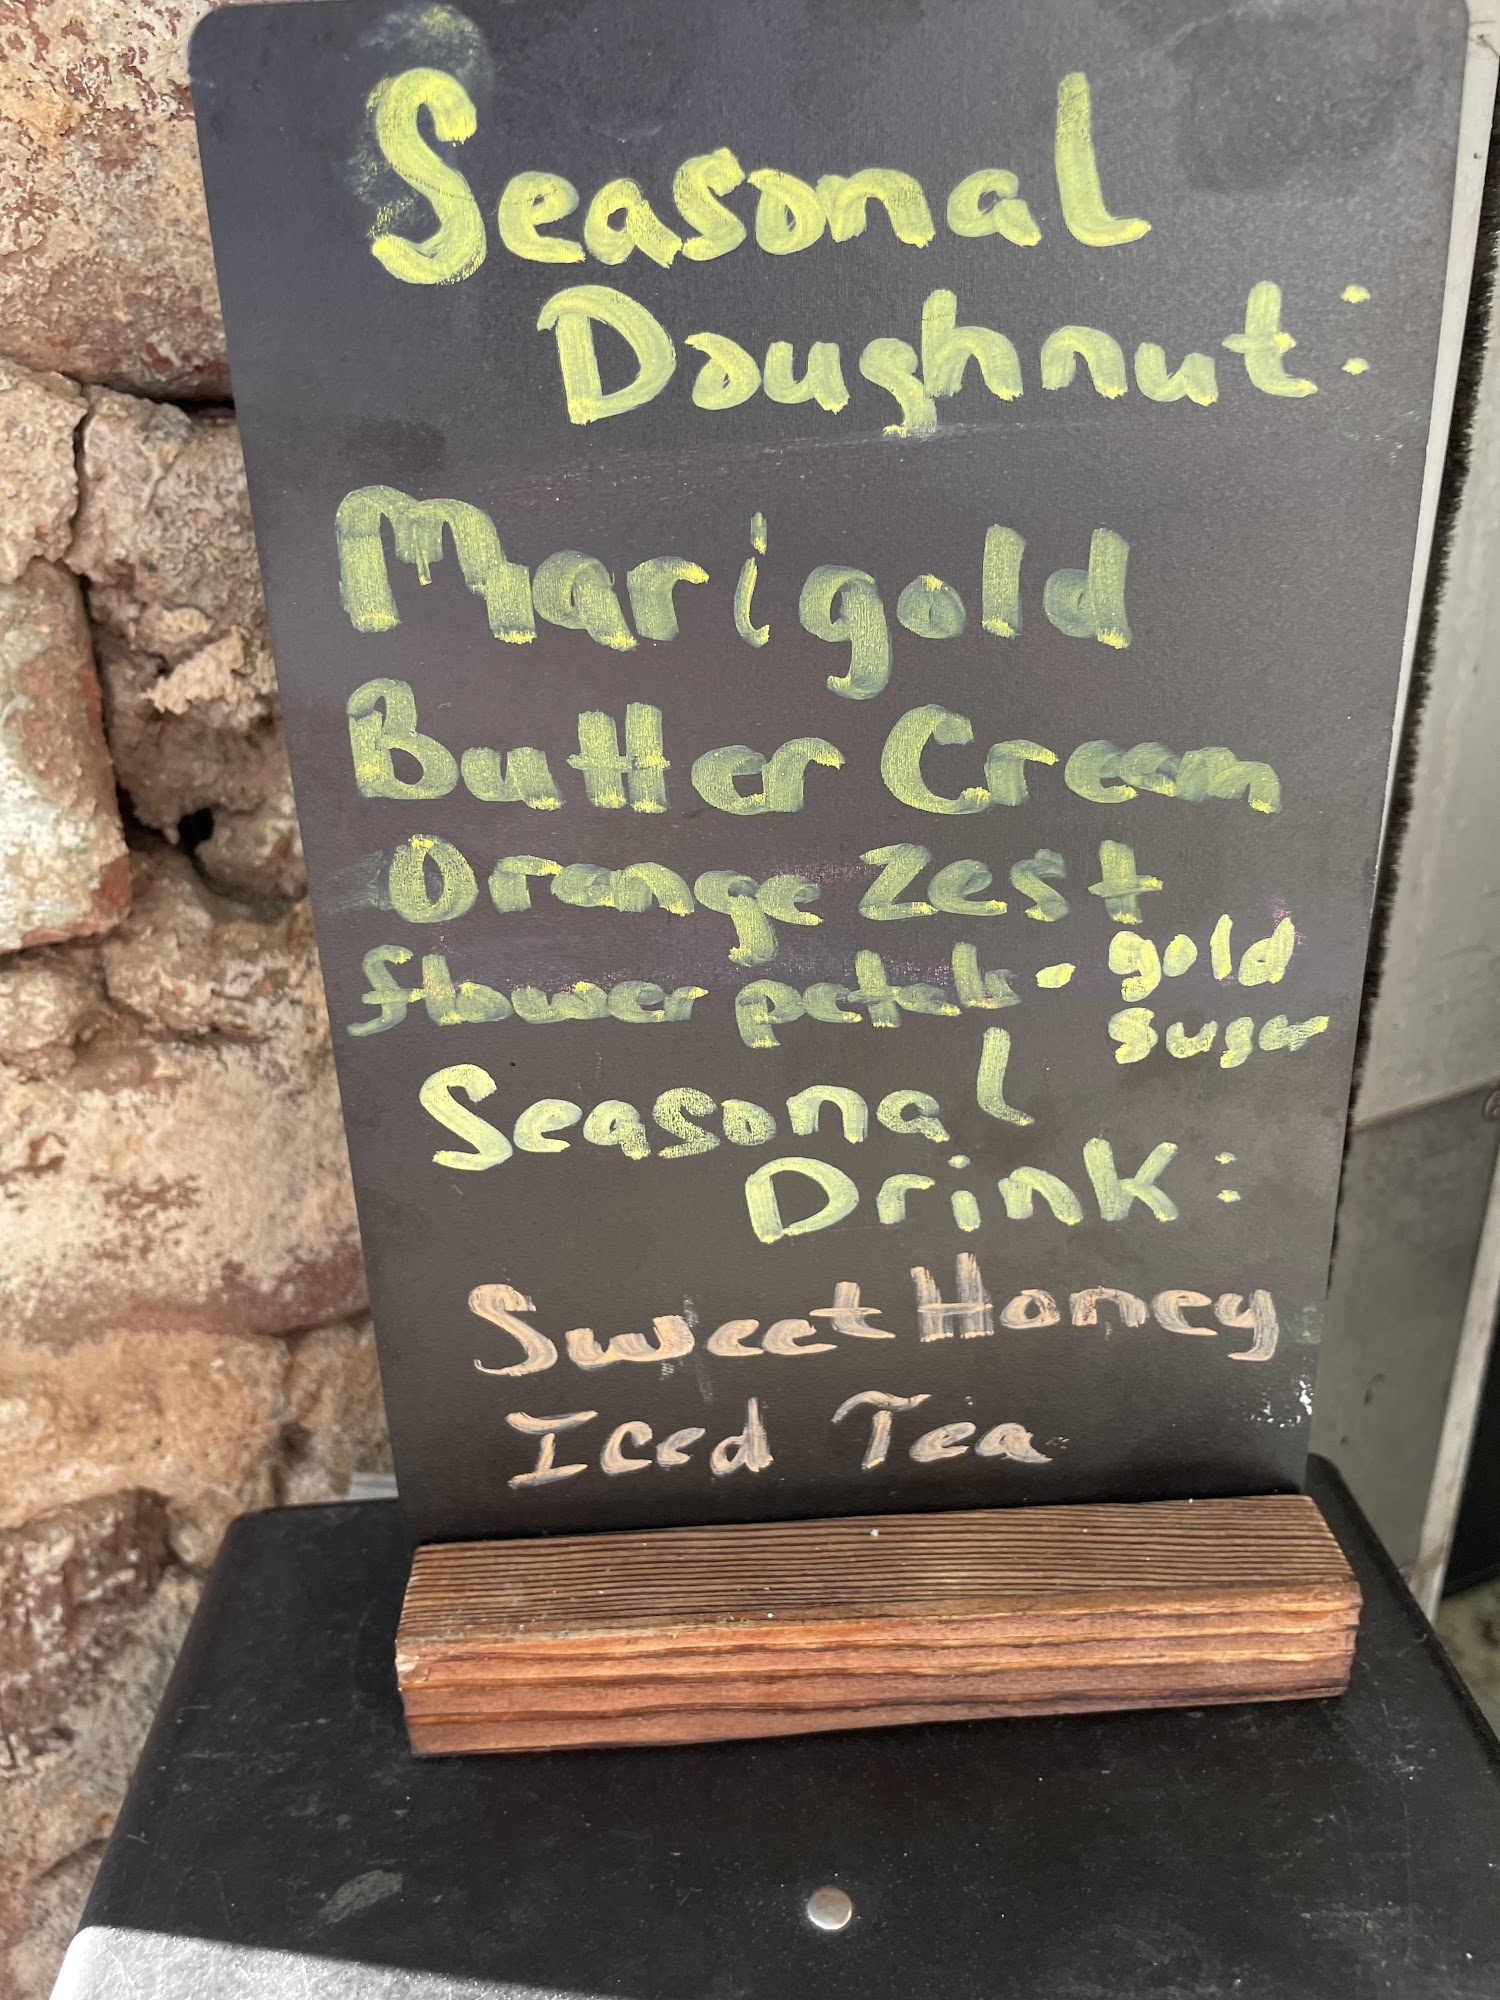 Seasonal
Doughnut:
Marigold
Butter Cream
Orange Zest
flower petals - gold
sugar
Seasonal
Drink:
Sweet Honey
Iced Tea